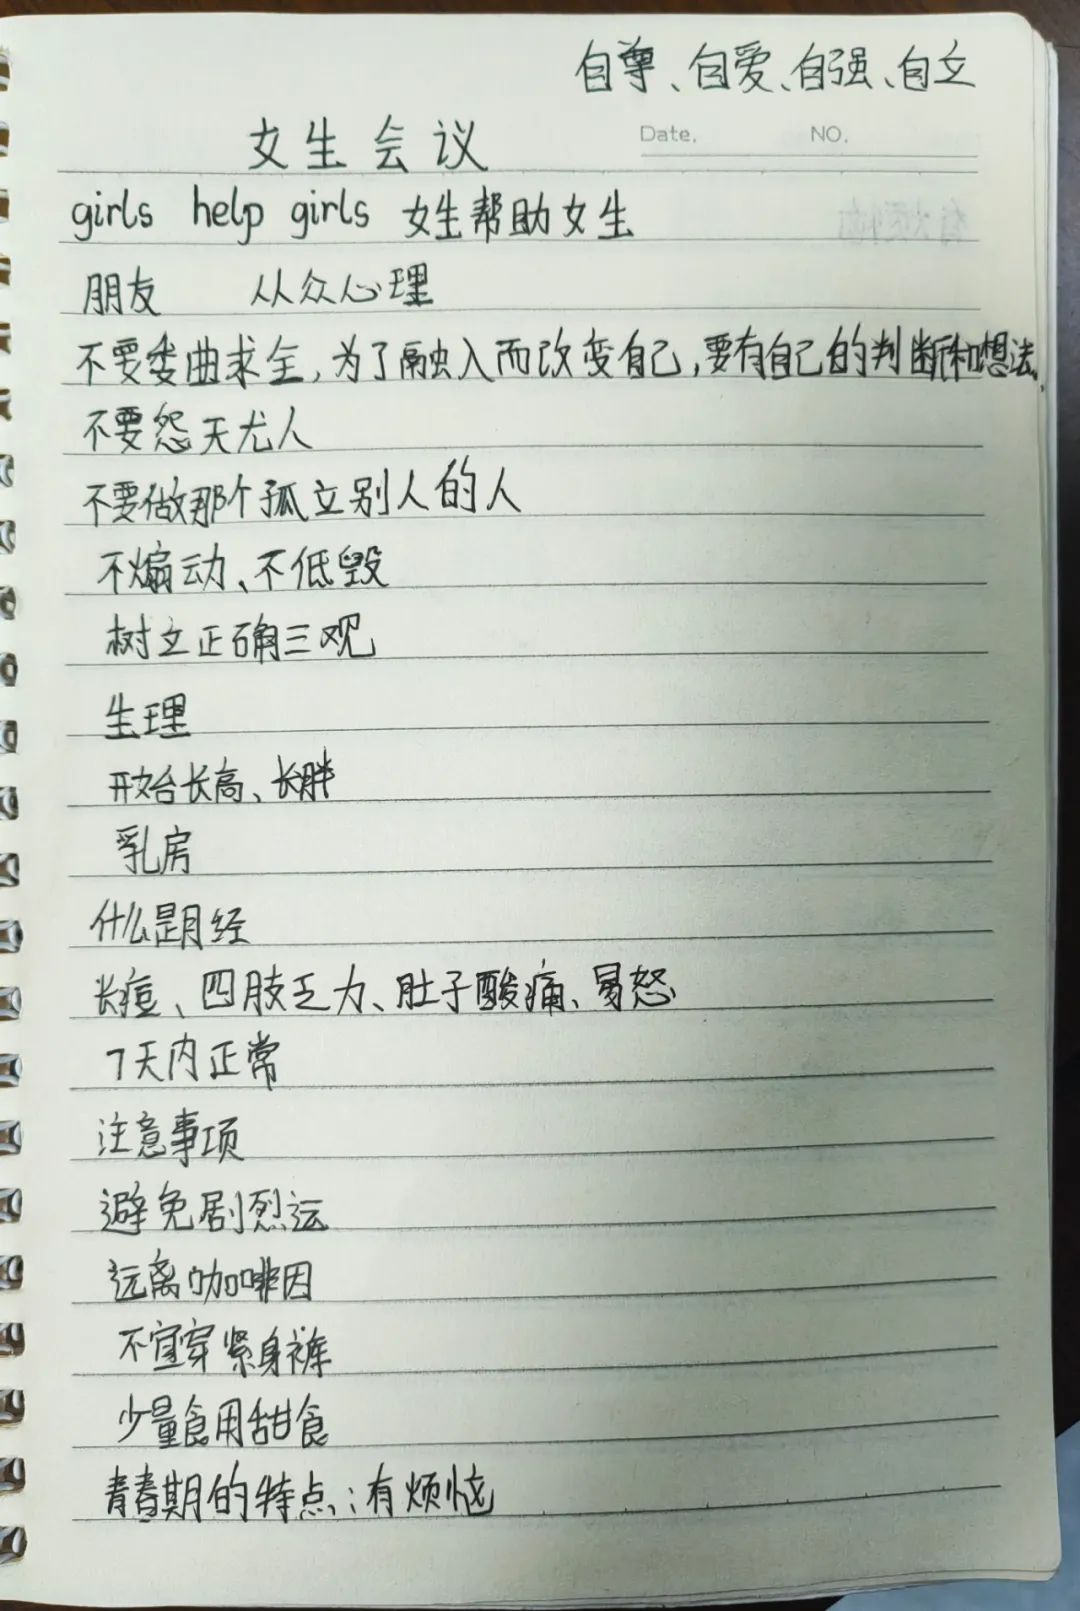 自尊、自爱、自强、自立
女生会议
Date. NO.
girls help girls 女生帮助女生
朋友 从众心理
不要委曲求全,为了融入而改变自己,要有自己的判断和想法.
不要怨天尤人
不要做那个孤立别人的人
不煽动、不低毁
树立正确三观
生理
开始长高、长胖
乳房
什么是月经
长痘、四肢乏力、肚子酸痛、易怒
7天内正常
注意事项
避免剧烈运
远离咖啡因
不宜穿紧身裤
少量食用甜食
青春期的特点:有烦恼